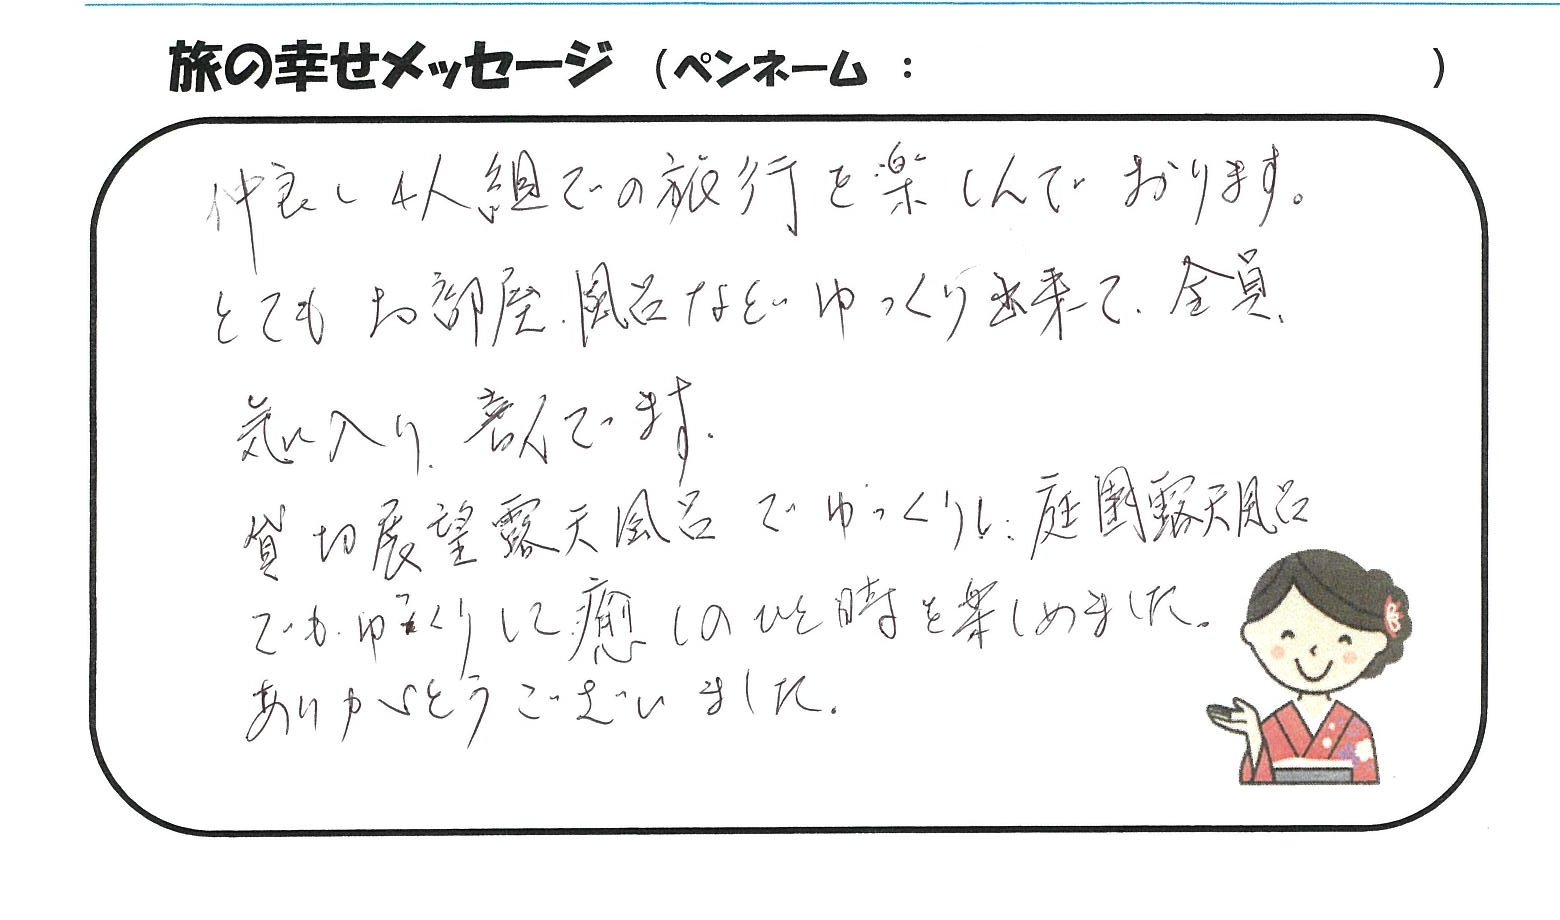 旅の幸せメッセージ (ペンネーム : )
仲良し4人組での旅行を楽しんでおります。
とてもお部屋、風呂などゆっくり出来て、全員、
気に入り、喜んでます。
貸切展望露天風呂でゆっくりし、庭園露天風呂
でもゆっくりして癒しのひと時を楽しめました。
ありがとうございました。